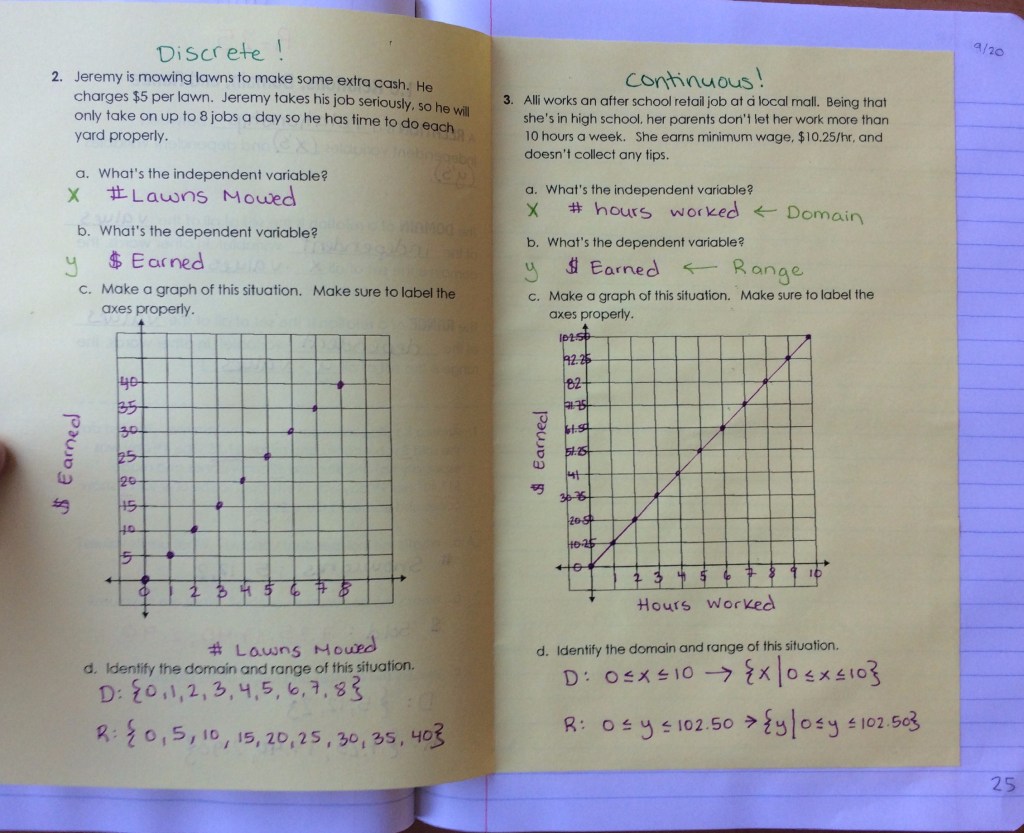 Discrete!
2. Jeremy is mowing lawns to make some extra cash. He
charges $5 per lawn. Jeremy takes his job seriously, so he will
only take on up to 8 jobs a day so he has time to do each
yard properly.
a. What's the independent variable?
x # Lawns Mowed
b. What's the dependent variable?
y $ Earned
c. Make a graph of this situation. Make sure to label the
axes properly.
40
35
30
25
20
15
10
5
0 1 2 3 4 5 6 7 8
$ Earned
# Lawns Mowed
d. Identify the domain and range of this situation.
D: {0,1,2,3,4,5,6,7,8}
R: {0,5,10,15,20,25,30,35,40}
9/20
continuous!
3. Alli works an after school retail job at a local mall. Being that
she's in high school, her parents don't let her work more than
10 hours a week. She earns minimum wage, $10.25/hr, and
doesn't collect any tips.
a. What's the independent variable?
x # hours worked ← Domain
b. What's the dependent variable?
y $ Earned ← Range
c. Make a graph of this situation. Make sure to label the
axes properly.
102.50
92.25
82
71.75
61.50
51.25
41
30.75
20.50
10.25
0
1 2 3 4 5 6 7 8 9 10
$ Earned
Hours Worked
d. Identify the domain and range of this situation.
D: 0≤x≤10 → {x|0≤x≤10}
R: 0≤y≤102.50 → {y|0≤y≤102.50}
25